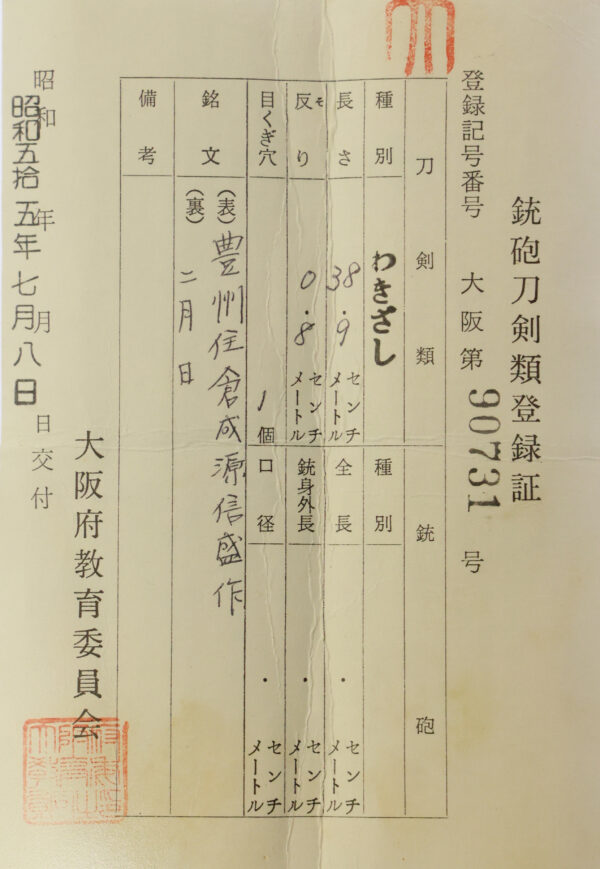 銃砲刀剣類登録証
登録記号番号 大阪第 90731 号
刀剣類 銃砲
種別 わきざし 種別
長さ 38.9 センチメートル 全長 . センチメートル
反り モ 0.8 センチメートル 銃身外長 . センチメートル
目くぎ穴 1個 口径 . センチメートル
銘文 (表) 豊州住倉成源信盛作
(裏) 二月日
備考
昭和 年 月 日交付
昭和五拾五年七月八日
大阪府教育委員会